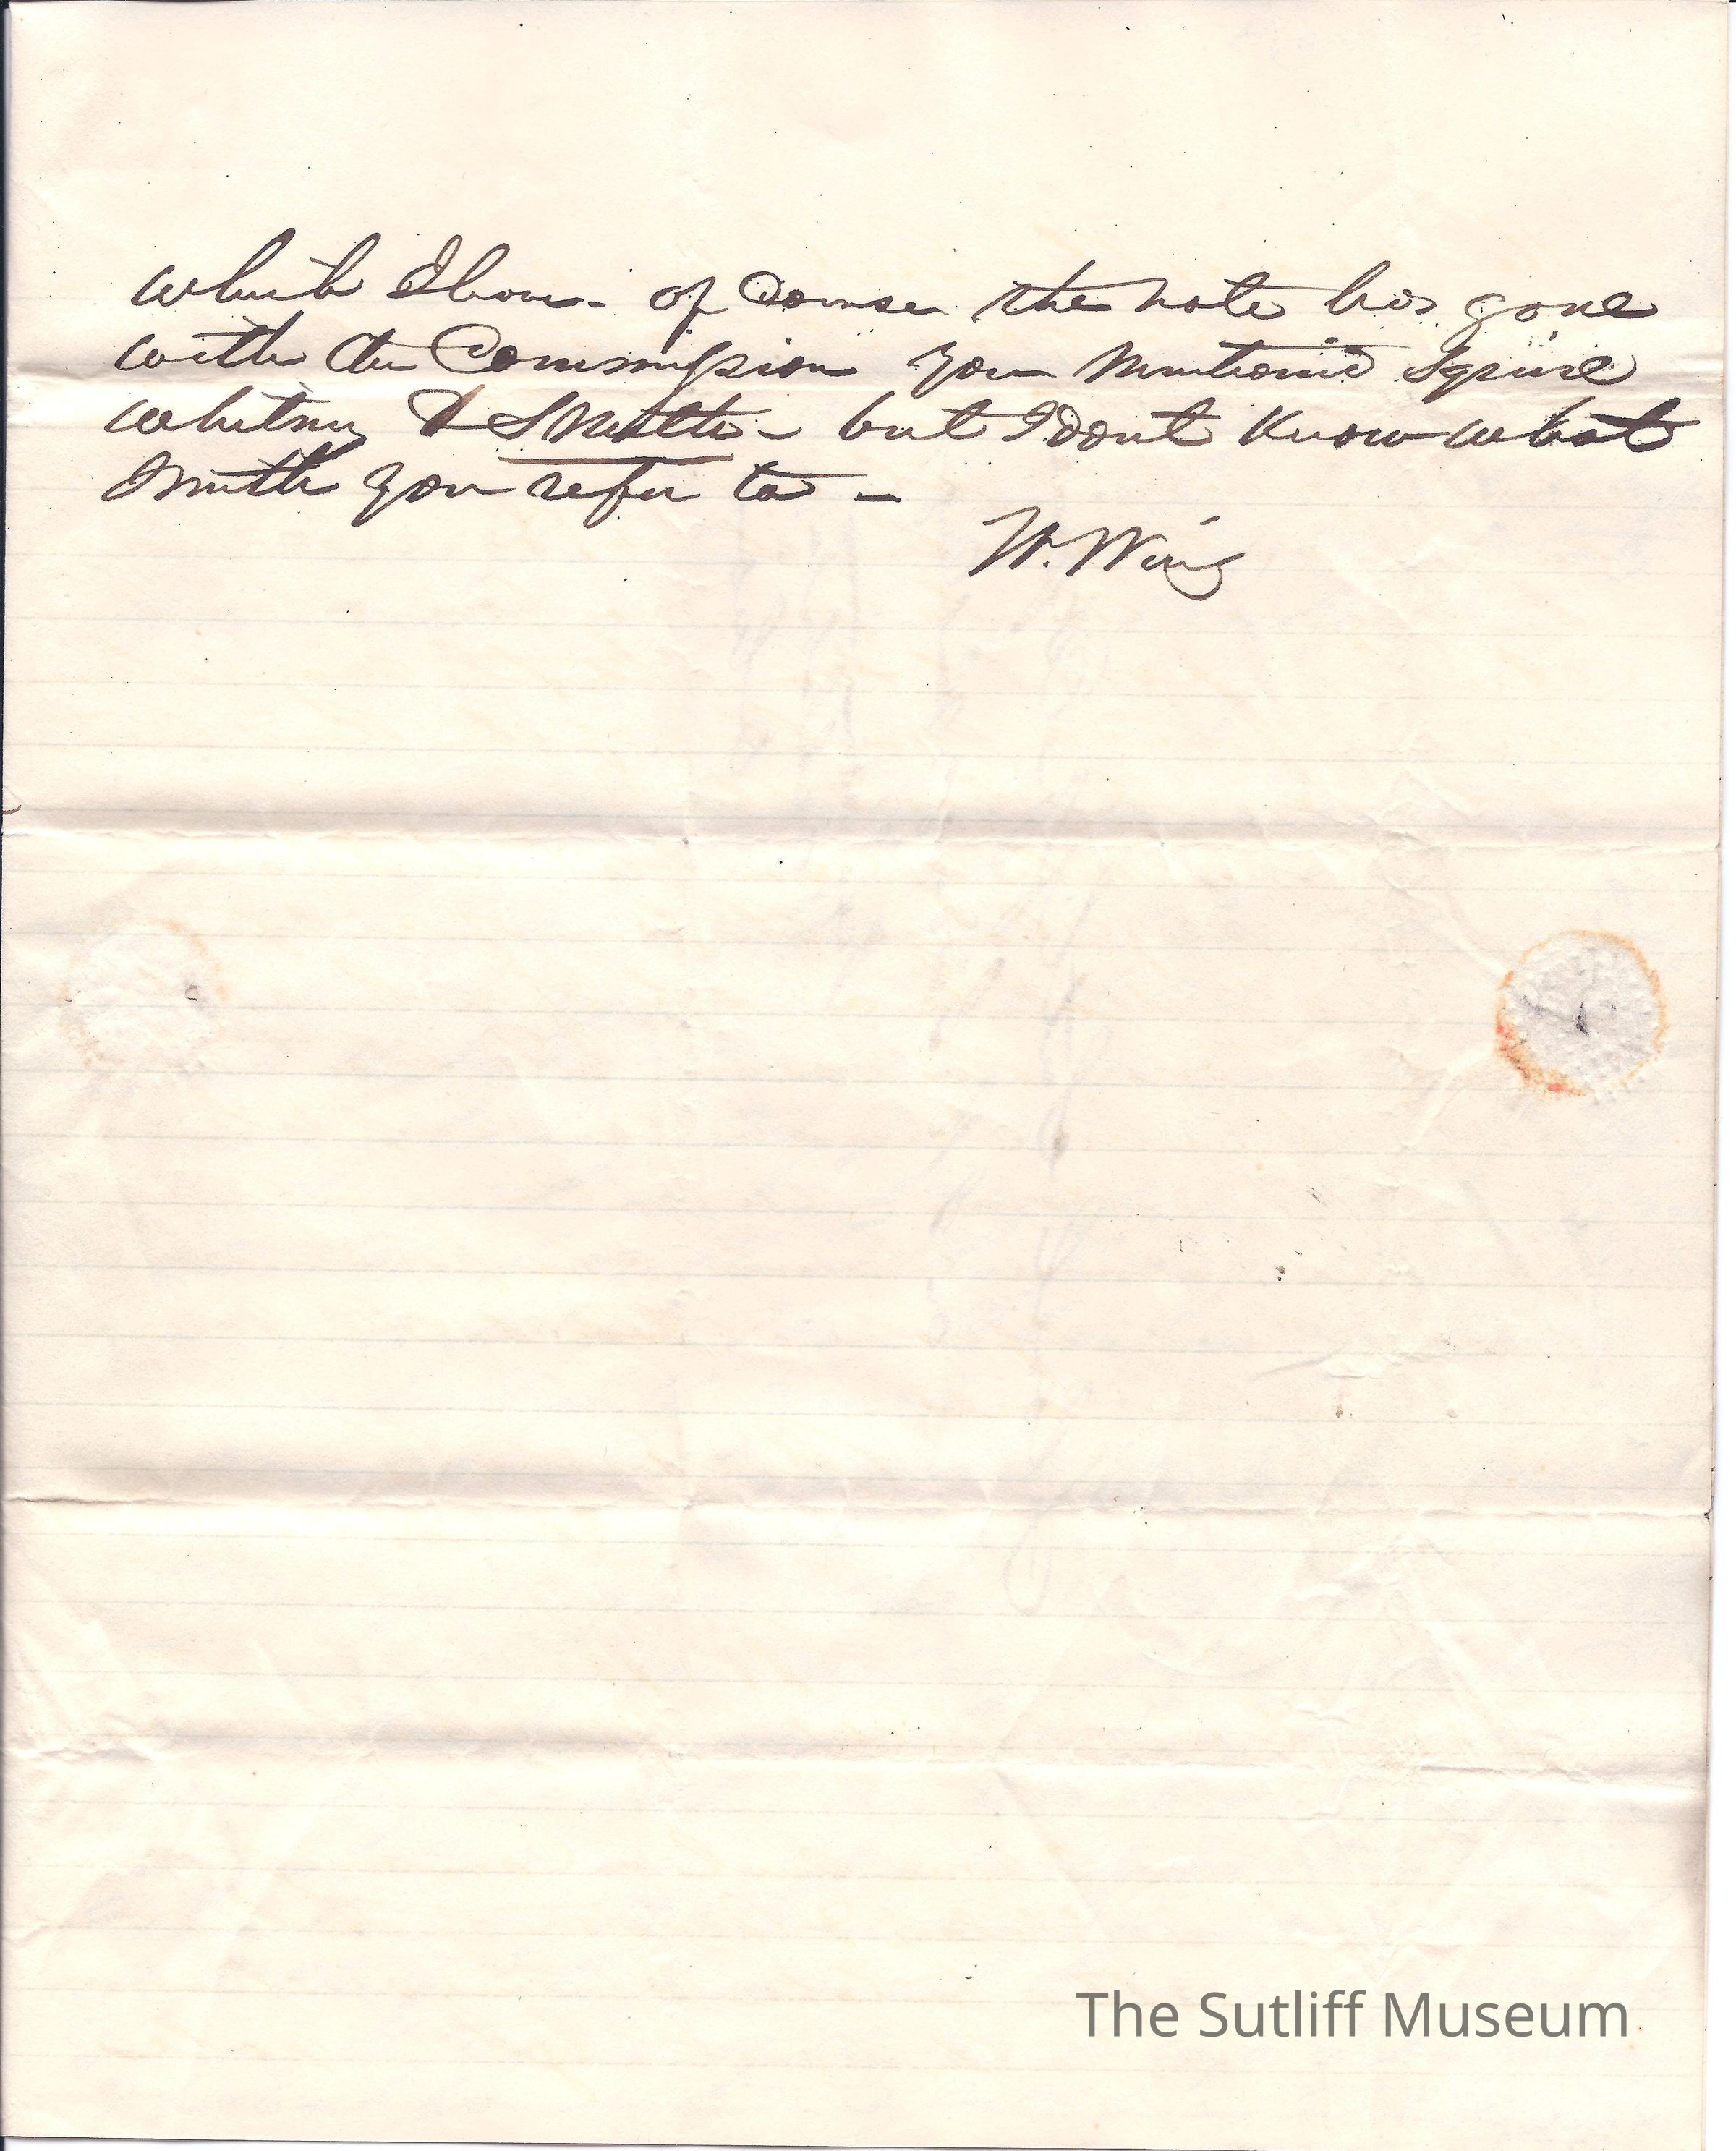 which I have - of Course the note has gone
with the Commission you mentioned Squire
Whitney & Smith - but I dont Know what
Smith you refer to -
W. Wing
The Sutliff Museum